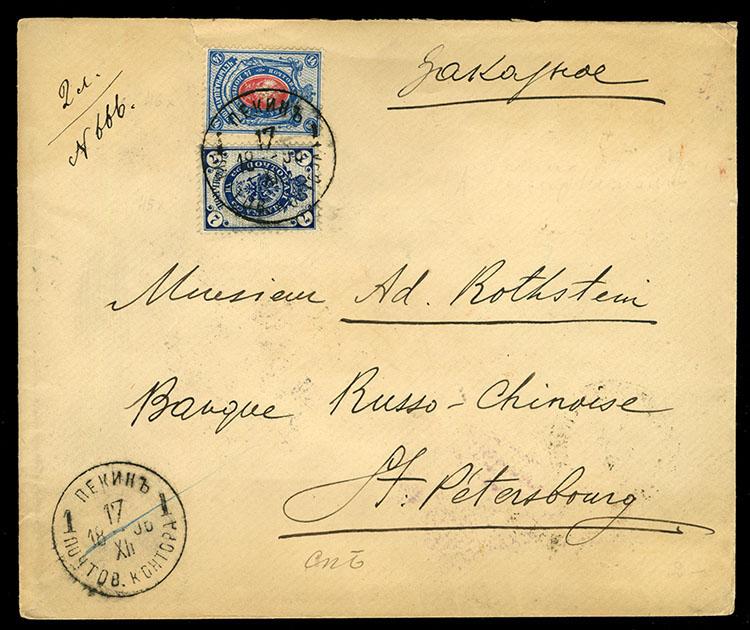 2 л.
N 666.
Заказное
ПЕКИНЪ
17
Monsieur Ad. Rothstein
Banque Russo-Chinoise
St. Pétersbourg
спб
ПЕКИНЪ
1 17 1
18 96
XII
ПОЧТОВ. КОНТОРА
14
7
7